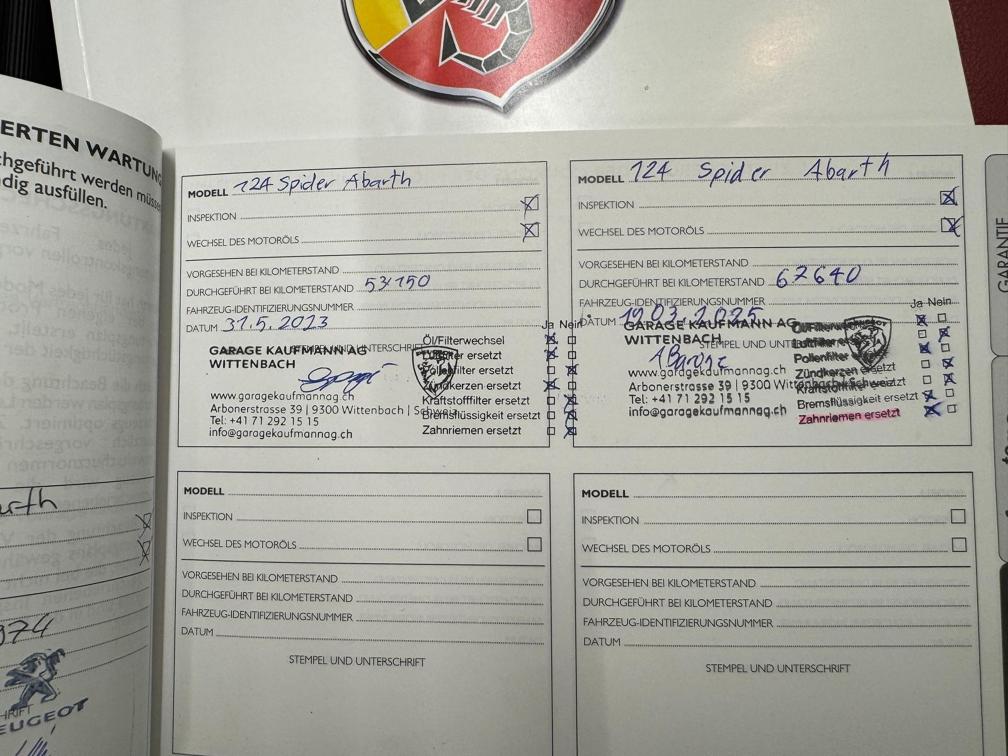 ERTEN WARTUN
chgeführt werden müsse
dig ausfüllen.
arth
974
EUGEOT
MODELL 124 Spider Abarth
INSPEKTION
WECHSEL DES MOTORÖLS
VORGESEHEN BEI KILOMETERSTAND
DURCHGEFÜHRT BEI KILOMETERSTAND 53'150
FAHRZEUG-IDENTIFIZIERUNGSNUMMER
DATUM 31.5.2023
Ja Nein
STEMPEL UND UNTERSCHRIFT
GARAGE KAUFMANN AG
WITTENBACH
www.garagekaufmannag.ch
Arbonerstrasse 39 | 9300 Wittenbach | Schweiz
Tel: +41 71 292 15 15
info@garagekaufmannag.ch
Öl/Filterwechsel
Luftfilter ersetzt
Pollenfilter ersetzt
Zündkerzen ersetzt
Kraftstofffilter ersetzt
Bremsflüssigkeit ersetzt
Zahnriemen ersetzt
MODELL 124 Spider Abarth
INSPEKTION
WECHSEL DES MOTORÖLS
VORGESEHEN BEI KILOMETERSTAND
DURCHGEFÜHRT BEI KILOMETERSTAND 67640
FAHRZEUG-IDENTIFIZIERUNGSNUMMER
DATUM 19.03.2025
Ja Nein
STEMPEL UND UNTERSCHRIFT
GARAGE KAUFMANN AG
WITTENBACH
www.garagekaufmannag.ch
Arbonerstrasse 39 | 9300 Wittenbach | Schweiz
Tel: +41 71 292 15 15
info@garagekaufmannag.ch
Öl/Filterwechsel
Luftfilter ersetzt
Pollenfilter ersetzt
Zündkerzen ersetzt
Kraftstofffilter ersetzt
Bremsflüssigkeit ersetzt
Zahnriemen ersetzt
MODELL
INSPEKTION
WECHSEL DES MOTORÖLS
VORGESEHEN BEI KILOMETERSTAND
DURCHGEFÜHRT BEI KILOMETERSTAND
FAHRZEUG-IDENTIFIZIERUNGSNUMMER
DATUM
STEMPEL UND UNTERSCHRIFT
MODELL
INSPEKTION
WECHSEL DES MOTORÖLS
VORGESEHEN BEI KILOMETERSTAND
DURCHGEFÜHRT BEI KILOMETERSTAND
FAHRZEUG-IDENTIFIZIERUNGSNUMMER
DATUM
STEMPEL UND UNTERSCHRIFT
GARANTIE